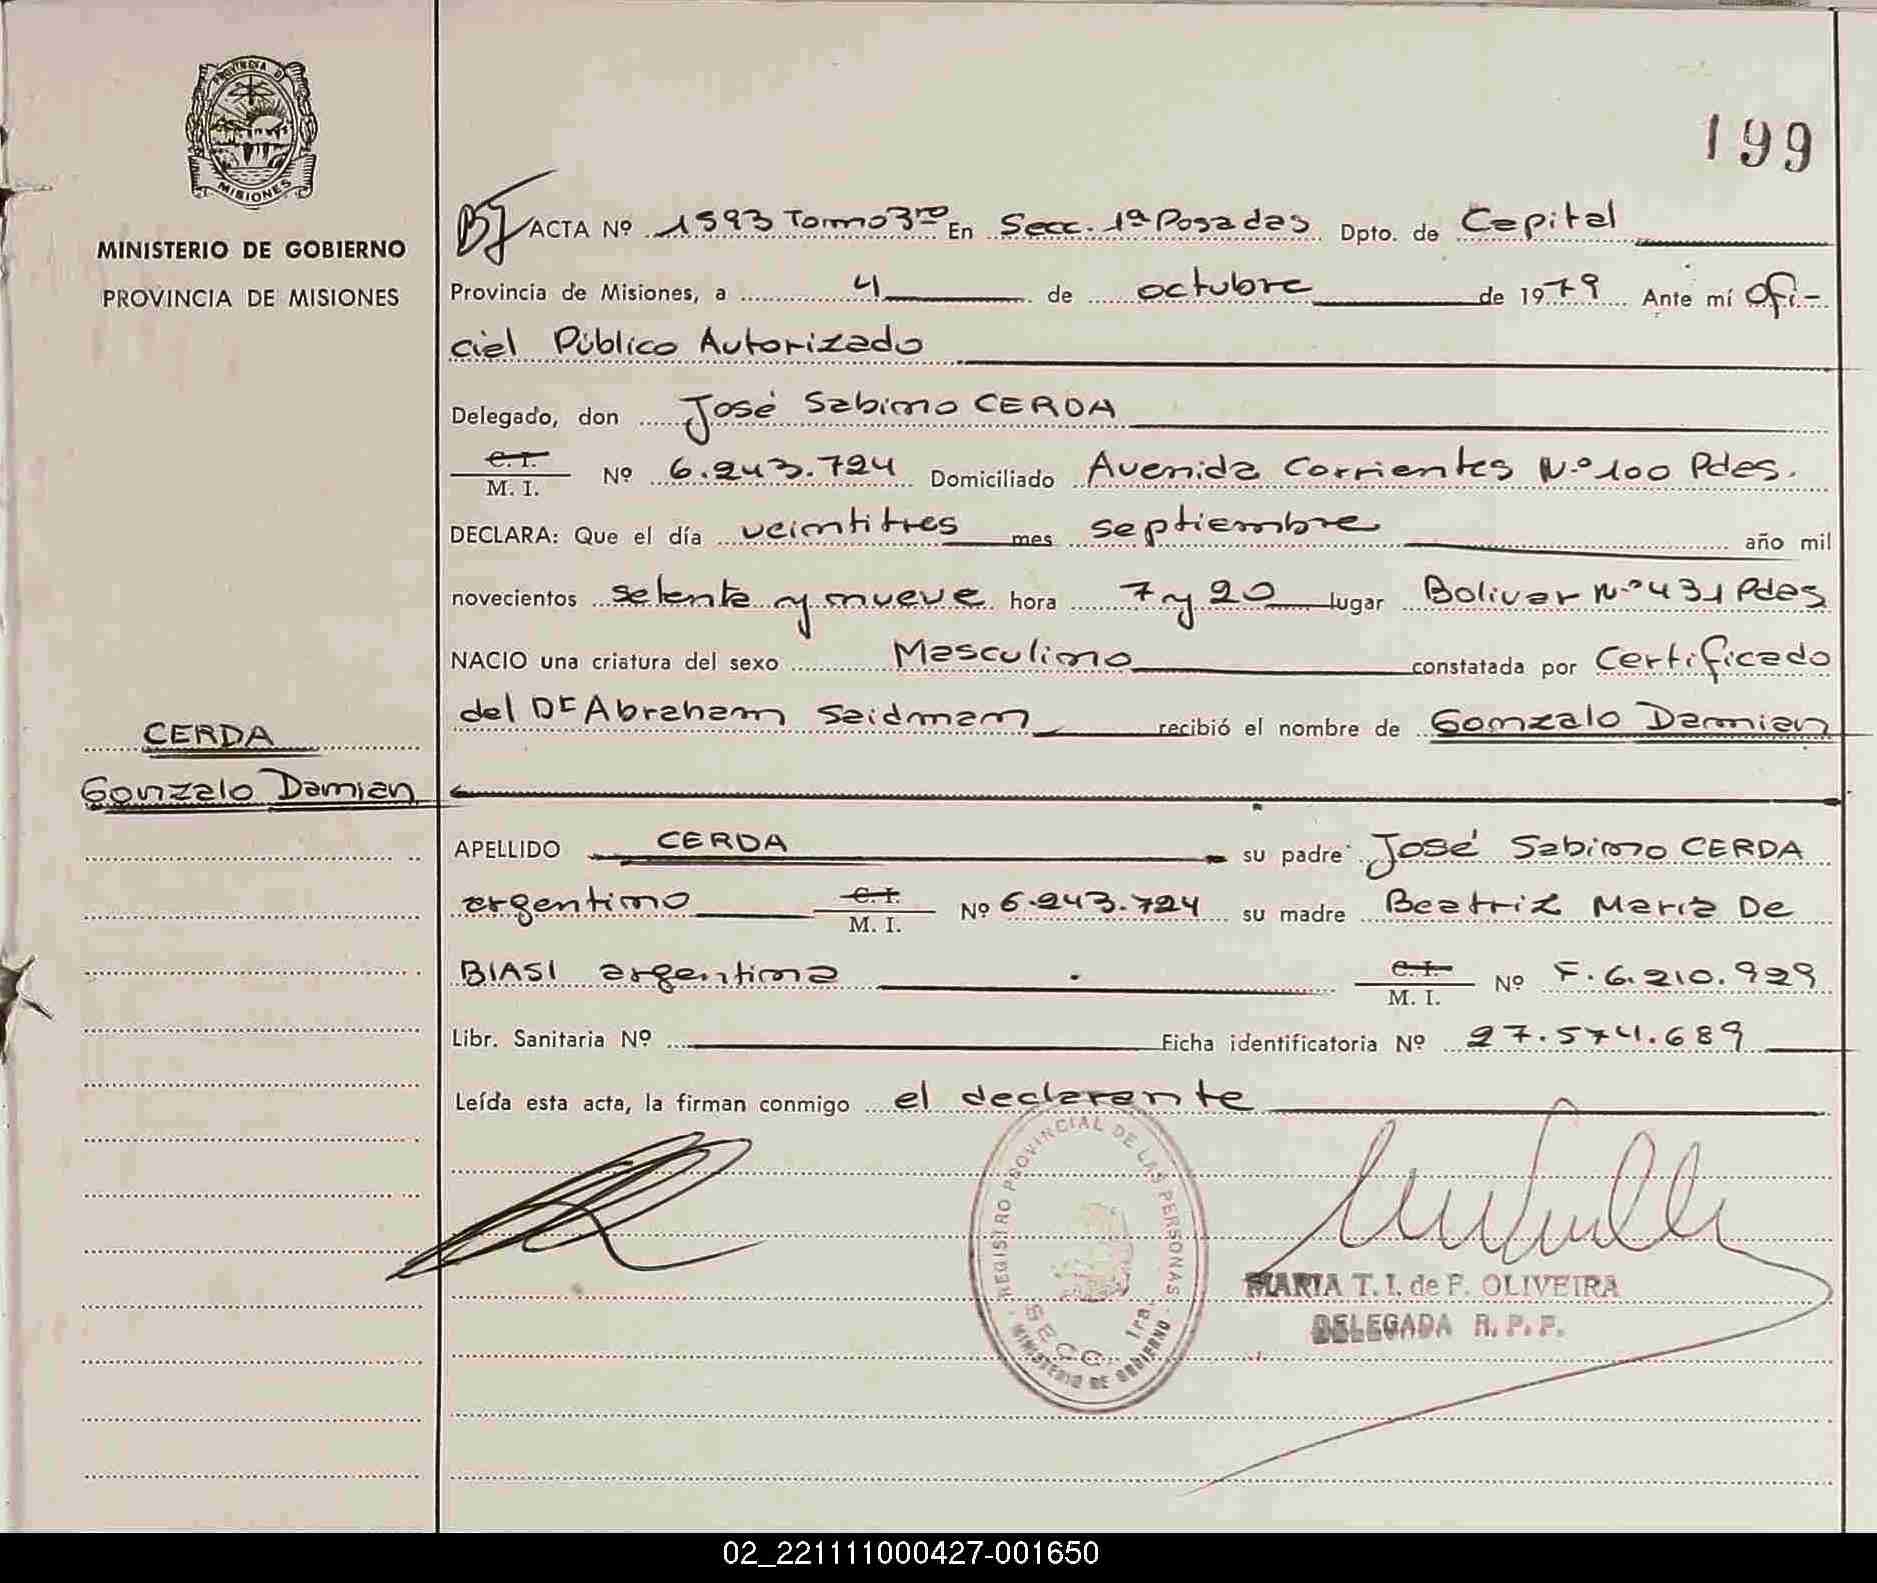 PROVINCIA DE
MISIONES
MINISTERIO DE GOBIERNO
PROVINCIA DE MISIONES
CERDA
Gonzalo Damian
199
ACTA Nº 1593 Tomo 3ro En Secc. 1ª Posadas Dpto. de Capital
Provincia de Misiones, a 4 de octubre de 1979 Ante mí Ofi-
cial Público Autorizado
Delegado, don José Sabino CERDA
C. I.
M. I. Nº 6.243.724 Domiciliado Avenida Corrientes N.º 100 Pdas.
DECLARA: Que el día veintitres mes septiembre año mil
novecientos setenta y nueve hora 7 y 20 lugar Bolivar N.º 431 Pdas
NACIO una criatura del sexo Masculino constatada por Certificado
del Dr Abraham Saidman recibió el nombre de Gonzalo Damian
APELLIDO CERDA su padre José Sabino CERDA
argentino C. I.
M. I. Nº 6.243.724 su madre Beatriz Maria De
BIASI argentina C. I.
M. I. Nº F. 6.210.929
Libr. Sanitaria Nº Ficha identificatoria Nº 27.574.689
Leída esta acta, la firman conmigo el declarante
REGISTRO PROVINCIAL DE LAS PERSONAS
SECC. 1ra.
MINISTERIO DE GOBIERNO
MARIA T. I. de F. OLIVEIRA
DELEGADA R. P. P.
02_221111000427-001650